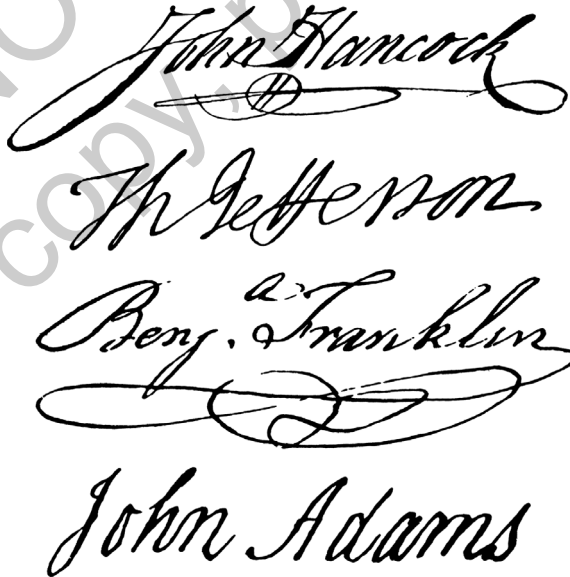 John Hancock
Th Jefferson
Benj. Franklin
John Adams
copy,